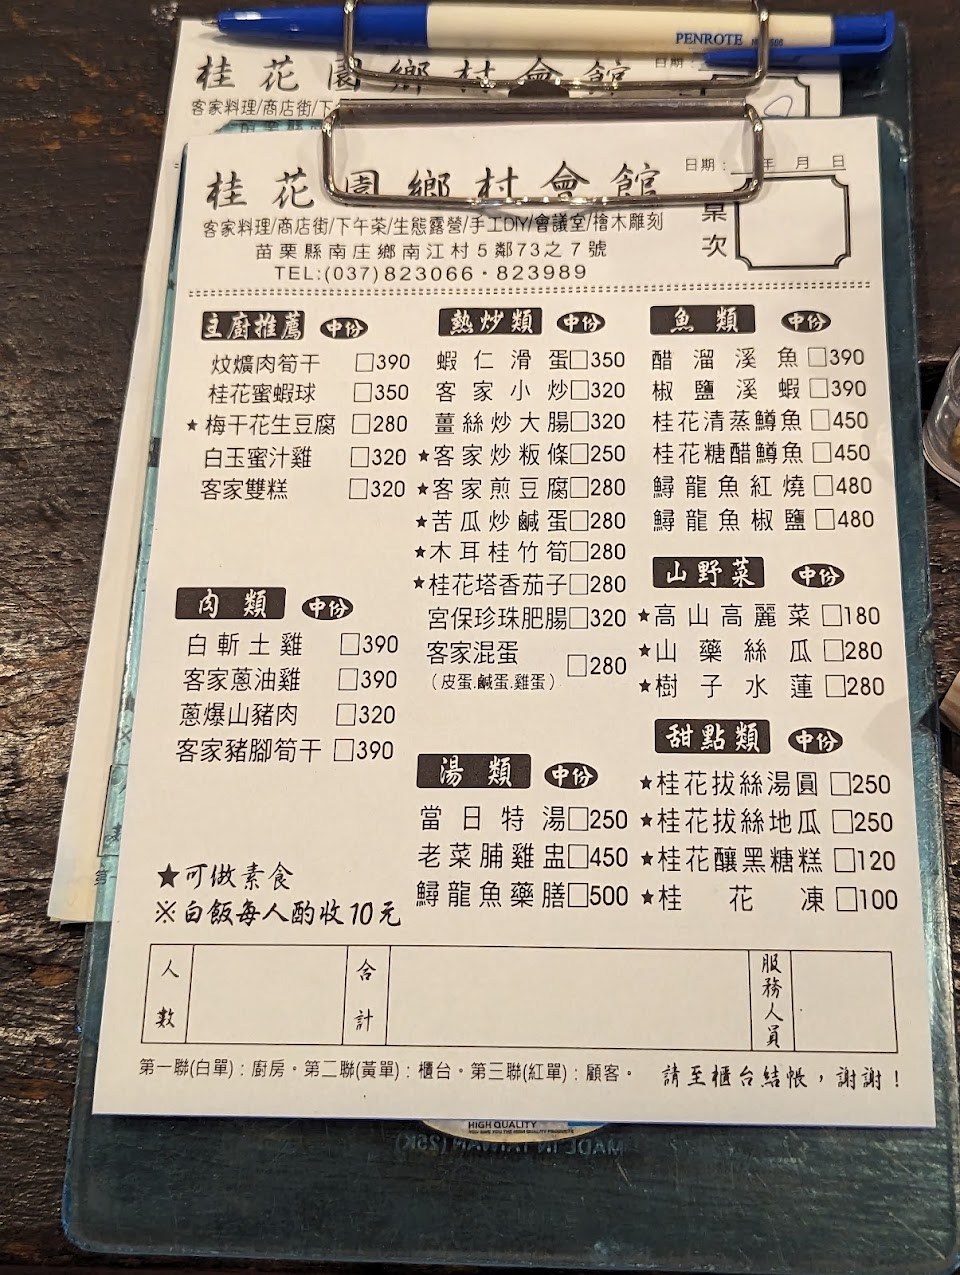 PENROTE
桂花園鄉村會館
日期:
客家料理/商店街/下
桂花園鄉村會館
日期： 年 月 日
客家料理/商店街/下午茶/生態露營/手工DIY/會議室/檜木雕刻
桌次
苗栗縣南庄鄉南江村5鄰73之7號
TEL:(037)823066・823989
主廚推薦 中份
炆爌肉筍干 □390
桂花蜜蝦球 □350
★梅干花生豆腐 □280
白玉蜜汁雞 □320
客家雙糕 □320
肉類 中份
白斬土雞 □390
客家蔥油雞 □390
蔥爆山豬肉 □320
客家豬腳筍干 □390
★可做素食
※白飯每人酌收10元
熱炒類 中份
蝦仁滑蛋□350
客家小炒□320
薑絲炒大腸□320
★客家炒粄條□250
★客家煎豆腐□280
★苦瓜炒鹹蛋□280
★木耳桂竹筍□280
★桂花塔香茄子□280
宮保珍珠肥腸□320
客家混蛋 □280
（皮蛋.鹹蛋.雞蛋）
湯類 中份
當日特湯□250
老菜脯雞盅□450
鱘龍魚藥膳□500
魚類 中份
醋溜溪魚□390
椒鹽溪蝦□390
桂花清蒸鱒魚□450
桂花糖醋鱒魚□450
鱘龍魚紅燒□480
鱘龍魚椒鹽□480
山野菜 中份
★高山高麗菜□180
★山藥絲瓜□280
★樹子水蓮□280
甜點類 中份
★桂花拔絲湯圓□250
★桂花拔絲地瓜□250
★桂花釀黑糖糕□120
★桂花凍□100
人數 合計 服務人員
第一聯(白單)：廚房。第二聯(黃單)：櫃台。第三聯(紅單)：顧客。 請至櫃台結帳，謝謝！
HIGH QUALITY
MADE IN TAIWAN (25K)